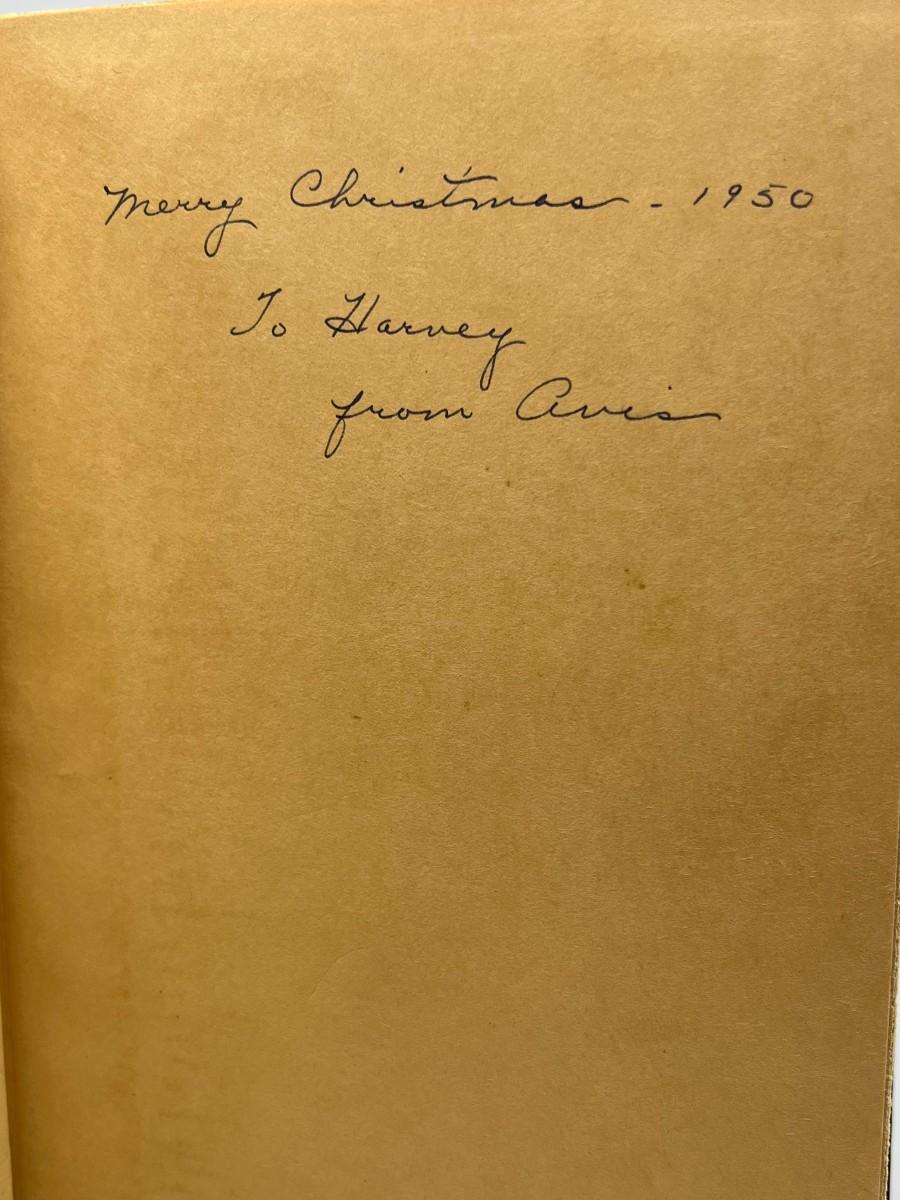 Merry Christmas - 1950
To Harvey
from Avis